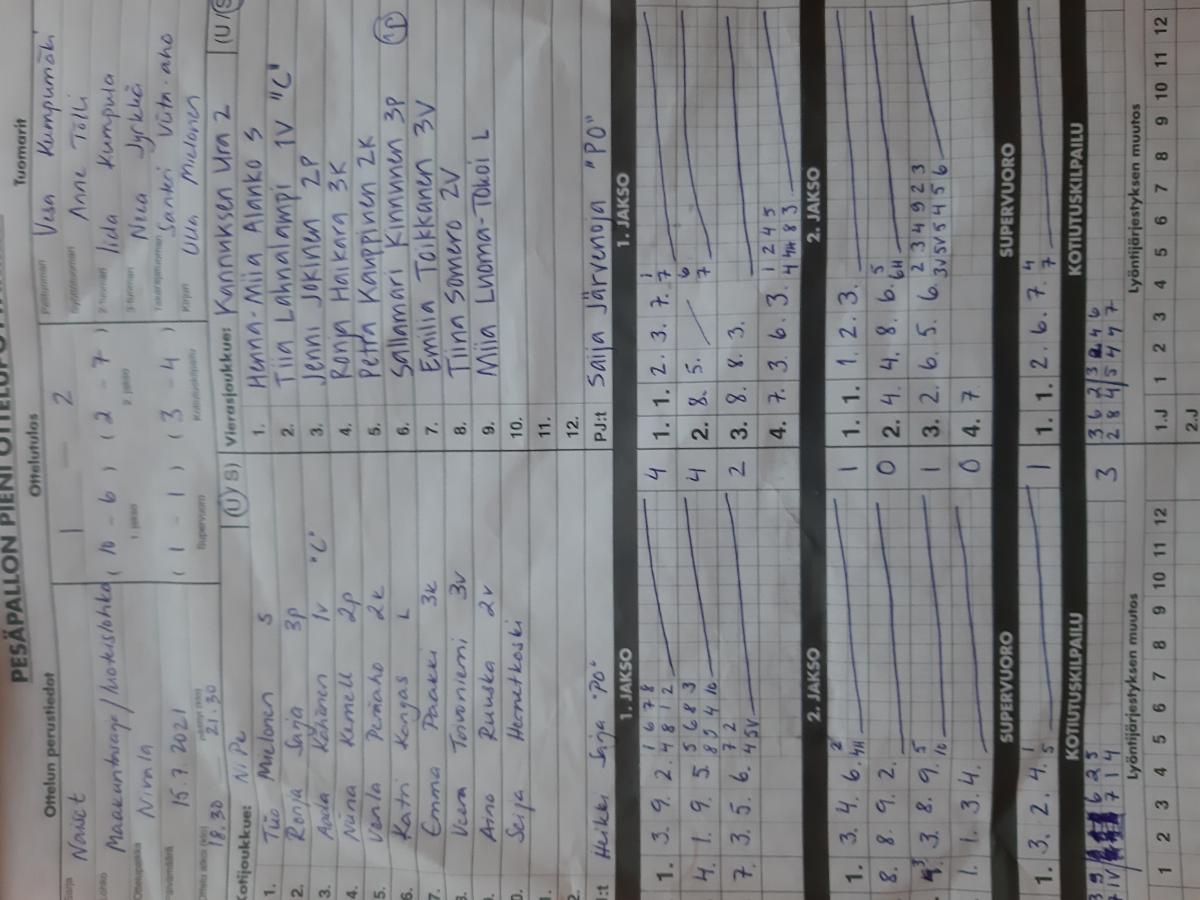 PESÄPALLON PIENI OTTELUPÖYTÄKIRJA
Ottelun perustiedot
Ottelutulos
Tuomarit
Sarja Naiset
Lohko Maakuntasarja/
Ottelupaikka Nivala
Päivämäärä 15.7.2021
Ottelu alkoi (klo) 18.30
Päättyi (klo) 21.30
1 – 2
(10 - 6) (2 - 7)
1. jakso 2. jakso
(1 - 1) (3 - 4)
Supervuoro Kotiutuskilpailu
Pelituomari Vesa Kumpumäki
Syöttötuomari Anne Tölli
2-tuomari Iida Kumpula
3-tuomari Neea Jyrkkä
Takarajatuomari Santeri Viita-aho
Kirjuri Ulla Mielonen
Kotijoukkue: NiPe (U/S)
1. Tiio Mielonen S
2. Ronja Saija 3P
3. Aada Kähönen 1V "C"
4. Niina Kemell 2P
5. Venla Perämaho 2K
6. Katri Kangas L
7. Emma Paakki 3K
8. Veera Toivoniemi 3V
9. Aino Ruuska 2V
10. Seija Hernetkoski
11.
12.
PJ:t Heikki Saija "PO"
Vierasjoukkue: Kannuksen Ura 2 (U/S)
1. Henna-Miia Alanko S
2. Tiia Lahnalampi 1V "C"
3. Jenni Jokinen 2P
4. Ronja Haikara 3K
5. Petra Kauppinen 2K
6. Sallamari Kinnunen 3P
7. Emilia Toikkanen 3V
8. Tiina Somero 2V
9. Miia Luoma-Tokoi L
10.
11.
12.
PJ:t Saija Järvenoja "PO"
1. JAKSO
1. JAKSO
1. 3. 9. 2. 4 8 1 2 4
1 6 7 8
4. 1. 9. 5. 8 9 4 10 4
5 6 8 3
7. 3. 5. 6. 4 5V 2
7 2
1. 1. 2. 3. 7. 7
1
2. 8. 5. 7
6
3. 8. 8. 3.
4. 7. 3. 6. 3. 4 4H 8 3
1 2 4 5
2. JAKSO
2. JAKSO
1. 3. 4. 6. 4H 1
2
8. 8. 9. 2. 0
3. 8. 9. 10 1
5
1. 1. 3. 4. 0
1. 1. 1. 2. 3.
2. 4. 4. 8. 6. 6H
5
3. 2. 6. 5. 6. 3V 5V 5 4 5 6
2 3 4 9 2 3
4. 7
SUPERVUORO
SUPERVUORO
1. 3. 2. 4. 5 1
1
1. 1. 2. 6. 7. 7
4
KOTIUTUSKILPAILU
KOTIUTUSKILPAILU
3 9 6 2 5
7 1V 7 1 4 3
3 6 2 3 2 4 6
2 8 4 5 4 4 7
Lyöntijärjestyksen muutos
Lyöntijärjestyksen muutos
1 2 3 4 5 6 7 8 9 10 11 12
1.J 1 2 3 4 5 6 7 8 9 10 11 12
2.J